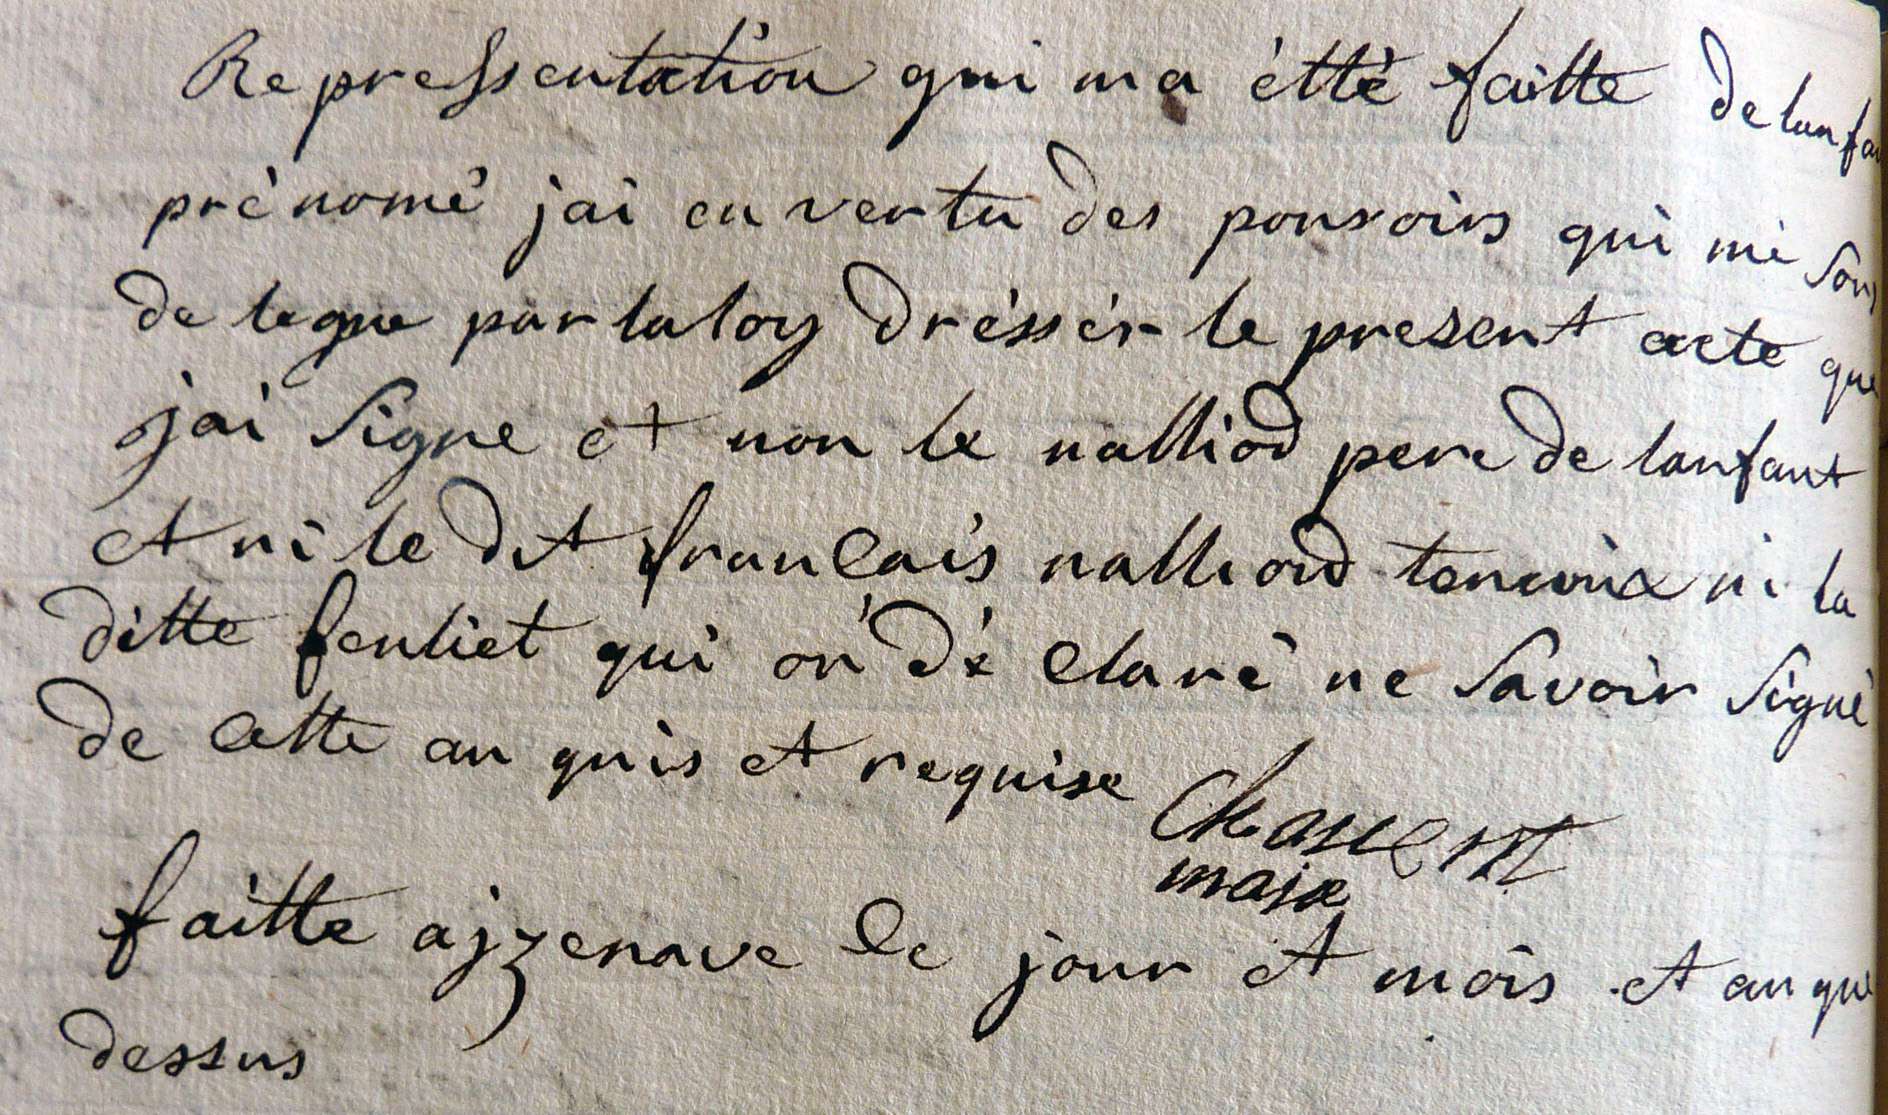 Repressentation qui ma étté faitte de lanfan
prénomé jai en vertu des pouvoirs qui mé sont
de legue par la loy drésser le present acte que
jai signe et non le nalliod pere de lanfant
et ni le dit francais nalliod temoux ni la
ditte fenliet qui on dé claré ne savoir signé
de cette an quis et requise
Chassent
maire
faitte ajzenave le jour et mois et an que
dessus